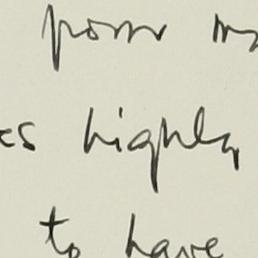 from
es highly
to have